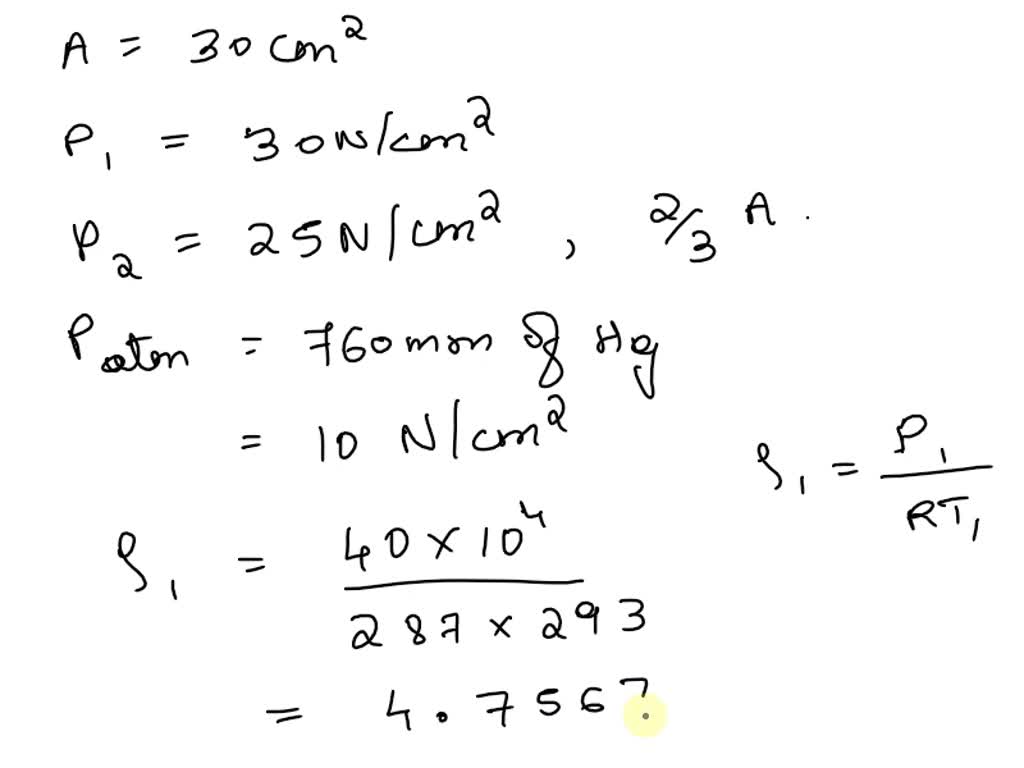 A = 30 cm²
P₁ = 30 N/cm²
P₂ = 25 N/cm² , 2/3 A .
Patm = 760 mm of Hg
= 10 N/cm²
ρ₁ = P₁ / RT₁
ρ₁ = 40 × 10⁴ / 287 × 293
= 4.7567